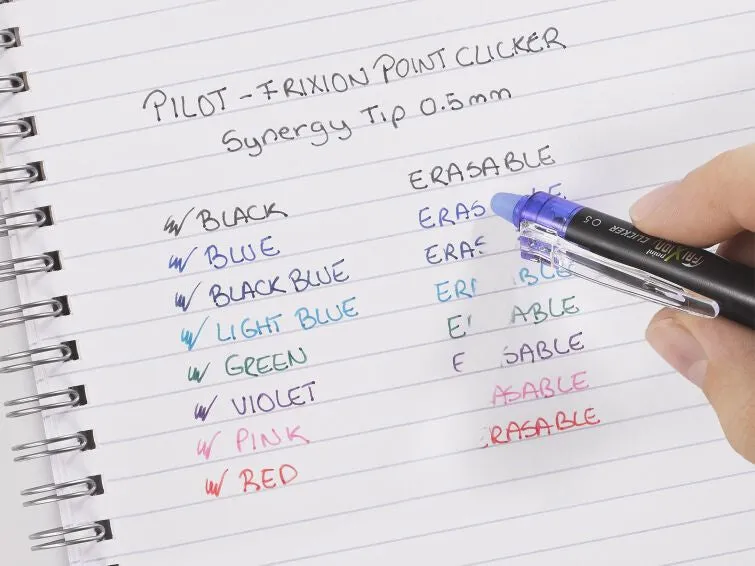 PILOT - FRIXION POINT CLICKER
Synergy Tip 0.5mm
ERASABLE
BLACK
ERAS BLE
BLUE
ERAS
BLACK BLUE
ER BLE
LIGHT BLUE
E ABLE
GREEN
E SABLE
VIOLET
ASABLE
PINK
RASABLE
RED
FRIXION point CLICKER 0.5